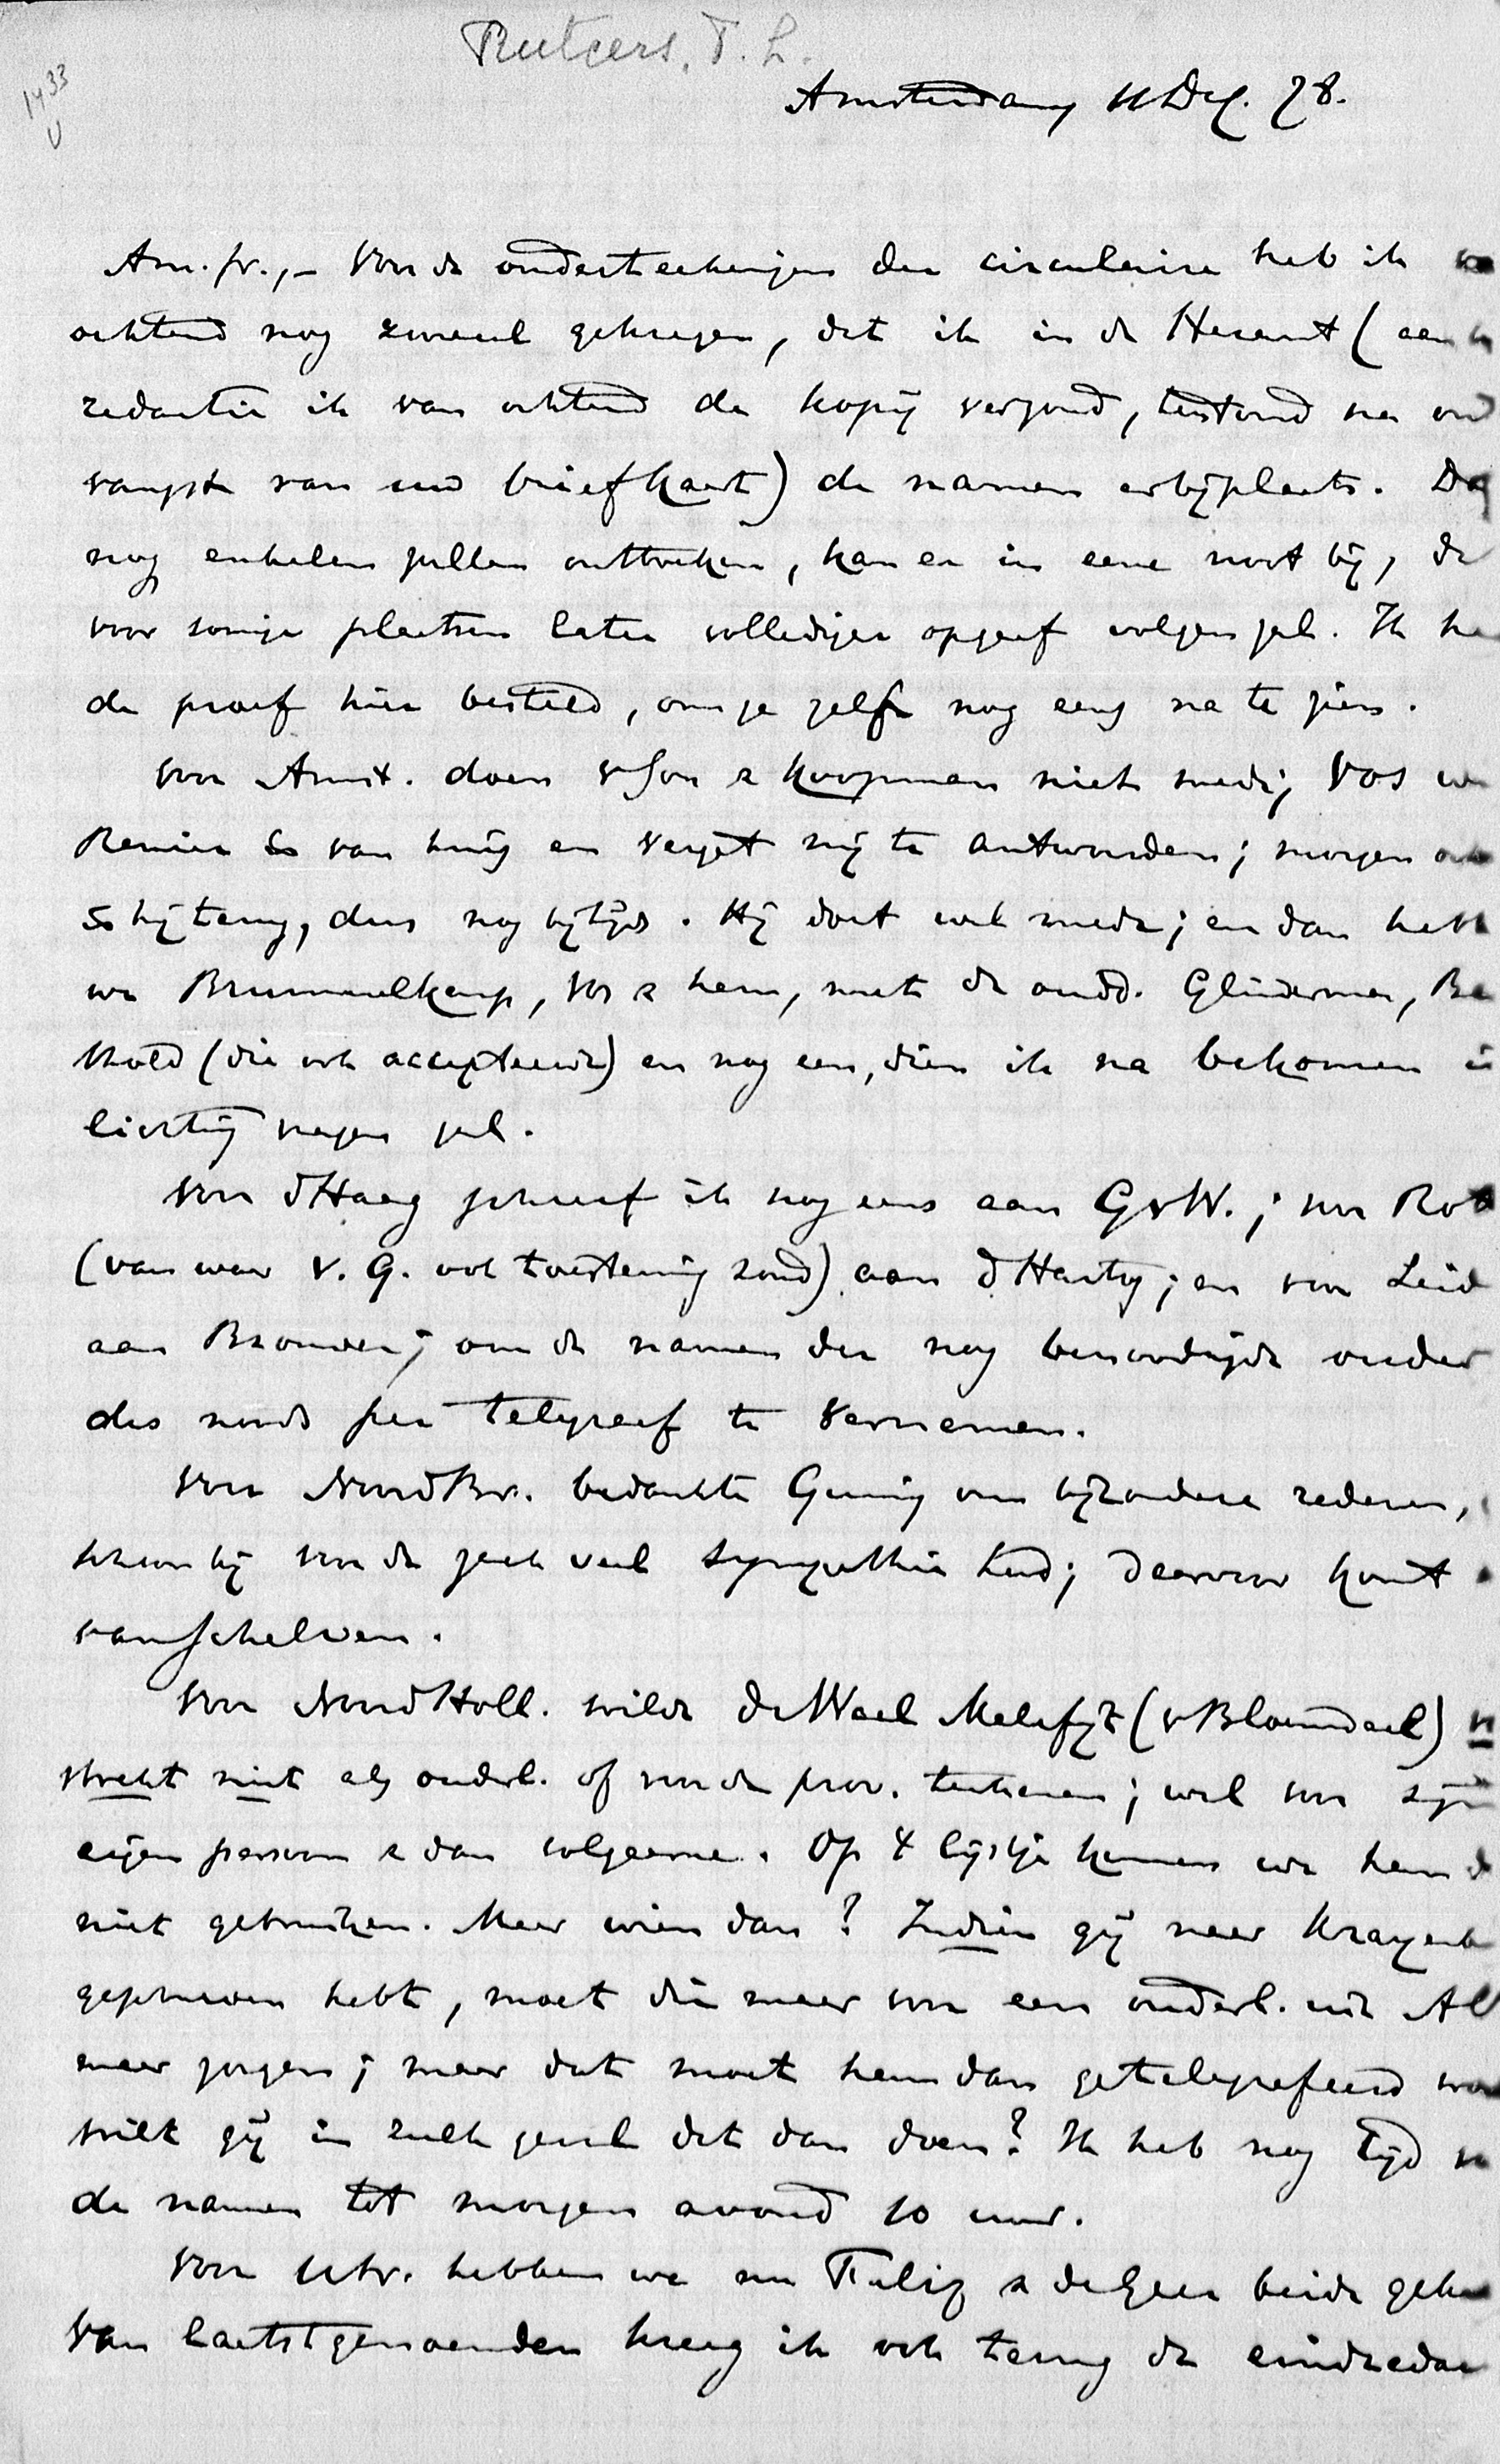 Rutgers, F. L.
1433
Amsterdam, 11 Dec. 78.
Am. fr., – Voor de onderteekeningen der circulaire heb ik
ochtend nog zooveel gekregen, dat ik in de Heraut (aan
redactie ik van ochtend de kopij verzond, terstond na
vangst van uw briefkaart) de namen erbijplaats.
nog enkelen zullen ontbreken, kan er in eene noot bij,
voor somige plaatsen later vollediger opgaaf volgen zal. Ik
de proef hier besteld, om ze zelf nog eens na te zien.
Voor Amst. doen v Son & Koopman niet mede; Vos
Renier is van huis en vergat mij te antwoorden; morgen
is hij terug, dus nog bijtijds. Hij doet wel mede; en dan
we Brummelkamp, Vos & hem, met de oudd. Glinderman,
thold (die ook accepteerde) en nog een, dien ik na bekomen
lichting vragen zal.
Voor d Haag schreef ik nog eens aan GvW.; voor
(van waar v. G. ook toestemming zond) aan d Hartog; en voor
aan Brouwer; om de namen der nog benoodigde
des noods per telegraaf te vernemen.
Voor NoordBr. bedankte Gunning om bijzondere redenen,
schoon hij voor de zaak veel sympathie had; daarvoor komt
van Schelven.
Voor NoordHoll. wilde de Waal Malefijt (v Bloemdaal)
strekt niet als ouderl. of voor de prov. teekenen; wel voor
eigen persoon & dan volgaarne. Op 't lijstje kunnen we hem
niet gebruiken. Maar wien dan? Indien gij naar
geschreven hebt, moet die maar voor een ouderl. uit
meer zorgen; maar dat moet hem dan getelegrafeerd
wilt gij in zulk geval dat dan doen? Ik heb nog tijd
de namen tot morgen avond 10 uur.
Voor Utr. hebben we nu Felix & de Geer beide
Van laatstgenoemden kreeg ik ook terug de